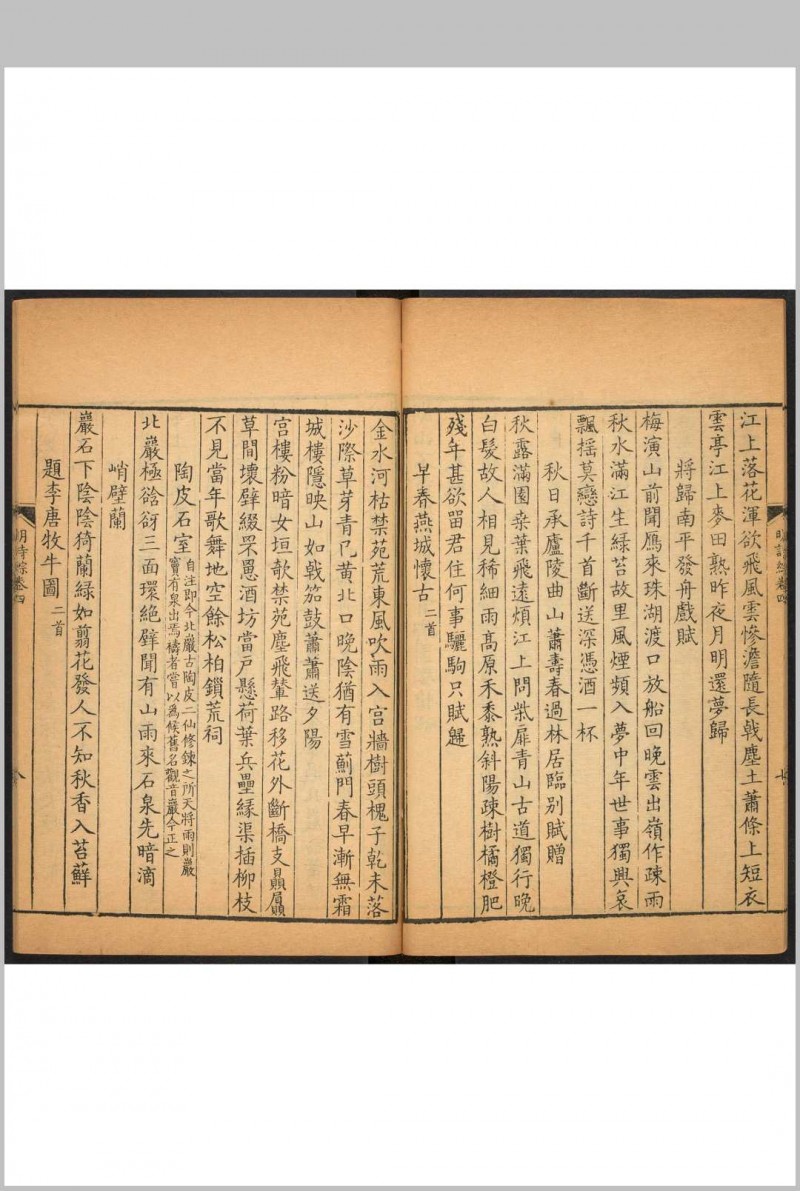 江上落花渾欲飛風雲慘澹隨長戟塵土蕭條上短衣
雲亭江上麥田熟昨夜月明還夢歸
將歸南平發舟戲賦
梅演山前聞鴈來珠湖渡口放船回晚雲出嶺作疎雨
秋水滿江生緑苔故里風煙頻入夢中年世事獨興哀
飄揺莫戀詩千首斷送深憑酒一杯
秋日承廬陵曲山蕭壽春過林居臨别賦贈
秋露滿園桒葉飛逺煩江上問柴扉青山古道獨行晚
白髮故人相見稀細雨髙原禾黍熟斜陽疎樹橘橙肥
殘年甚欲留君住何事驪駒只賦歸
早春燕城懷古二首
金水河枯禁苑荒東風吹雨入宫牆樹頭槐子乾未落
沙際草芽青已黄北口晚陰猶有雪薊門春早漸無霜
城樓隱映山如戟笳鼓蕭蕭送夕陽
宫樓粉暗女垣欹禁苑塵飛輦路移花外斷橋支贔屭
草間壊壁綴罘罳酒坊當戸懸荷葉兵壘縁渠插柳枝
不見當年歌舞地空餘松柏鎻荒祠
陶皮石室自注即今北巖古陶皮二仙修鍊之所天將雨則巖
竇有泉出焉禱者嘗以為候舊名觀音巖今正之
北巖極谽谺三面環絶壁聞有山雨來石泉先暗滴
峭壁蘭
巖石下陰陰猗蘭緑如翦花發人不知秋香入苔蘚
題李唐牧牛圖二首
明詩綜卷四